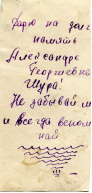 Дарю на долг
память
Александре
Георгиевне
Шура!
Не забывай м
и всегда вспом
най